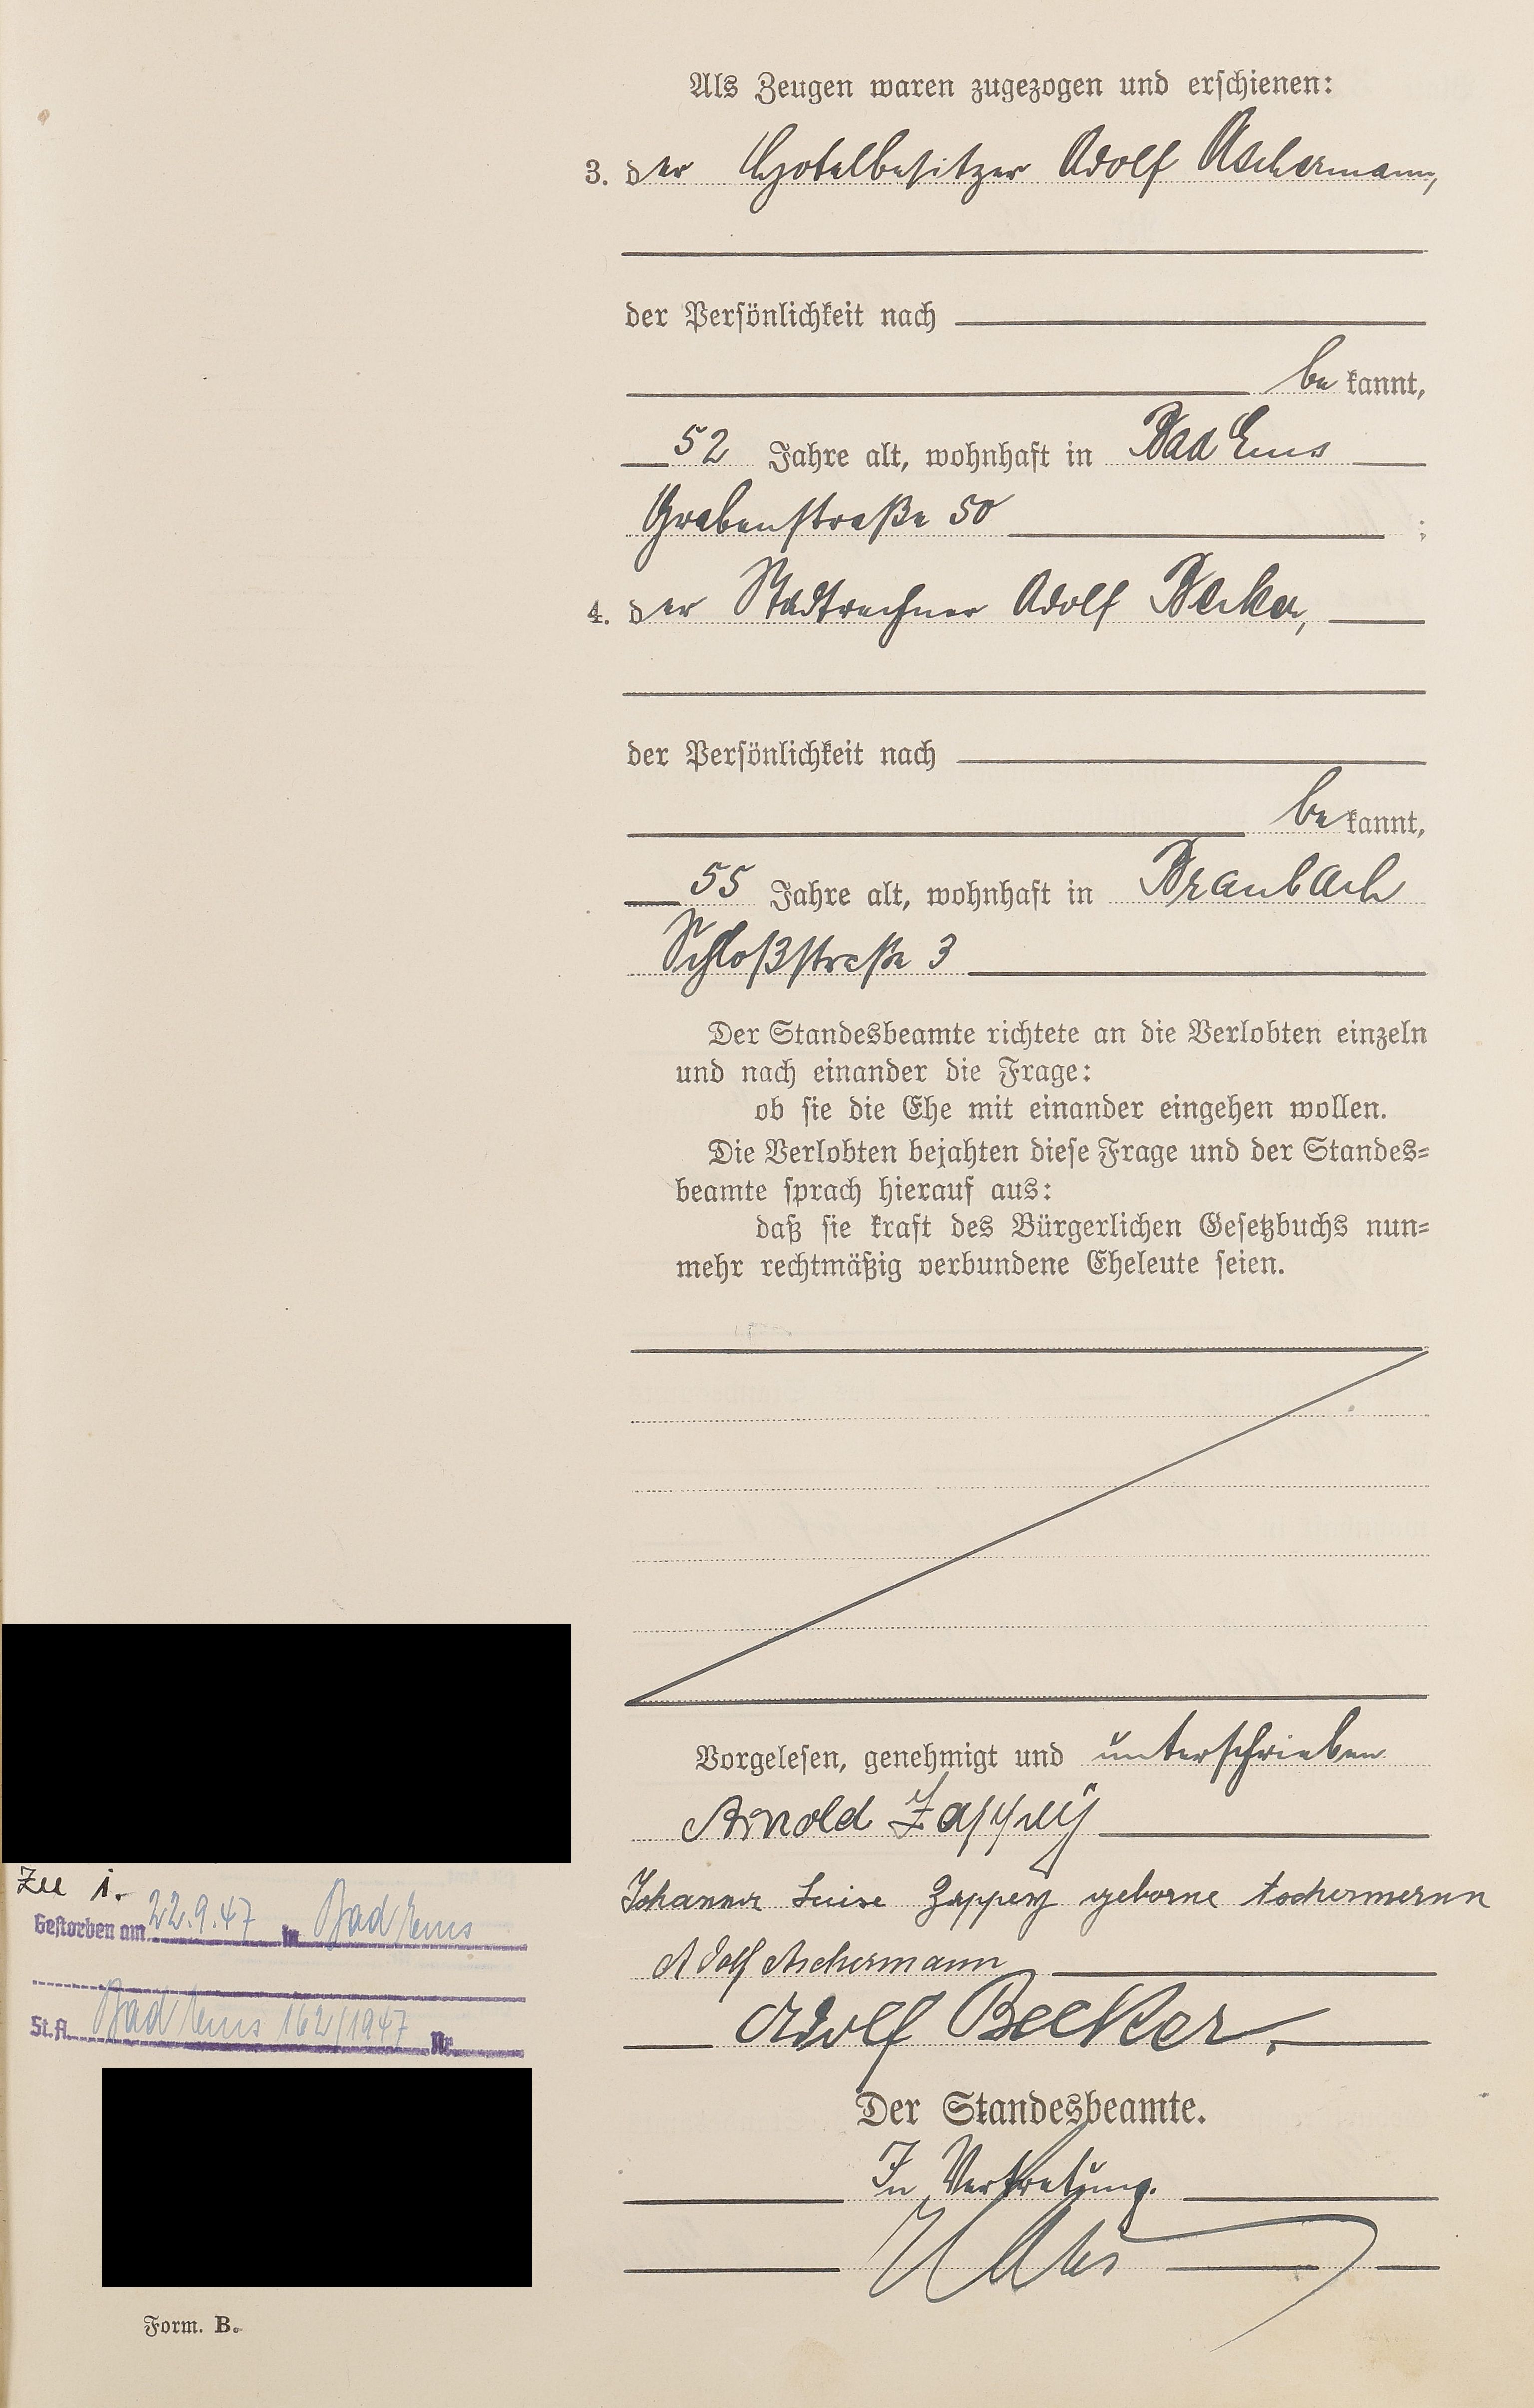 Als Zeugen waren zugezogen und erschienen:
3. der Hotelbesitzer Adolf Aschermann,
der Persönlichkeit nach
be kannt,
52 Jahre alt, wohnhaft in Bad Ems
Grabenstraße 50 ;
4. der Stadtrechner Adolf Becker,
der Persönlichkeit nach
be kannt,
55 Jahre alt, wohnhaft in Braubach
Schloßstraße 3
Der Standesbeamte richtete an die Verlobten einzeln
und nach einander die Frage:
ob sie die Ehe mit einander eingehen wollen.
Die Verlobten bejahten diese Frage und der Standes=
beamte sprach hierauf aus:
daß sie kraft des Bürgerlichen Gesetzbuchs nun=
mehr rechtmäßig verbundene Eheleute seien.
Vorgelesen, genehmigt und unterschrieben
Arnold Zappey
Johanna Luise Zappey geborne Aschermann
Adolf Aschermann
Adolf Becker.
Der Standesbeamte.
In Vertretung.
Zu 1.
Gestorben am 22.9.47 in Bad Ems
St.A. Bad Ems 162/1947 Nr.
Form. B.